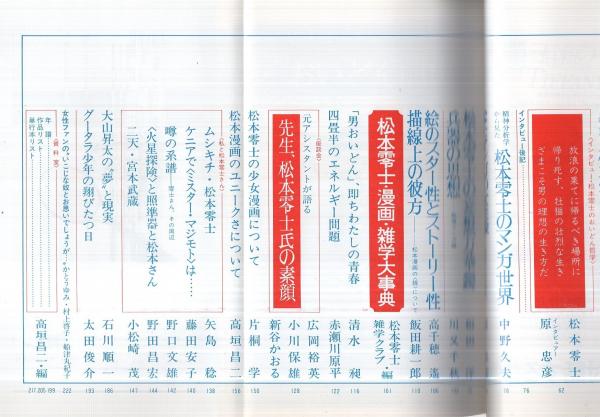 〈インタビュー松本零士のおいどん哲学〉
放浪の果てに帰るべき場所に
帰り死す、壮慍の壮烈な生き
ざまこそ男の理想の生き方だ
松本零士
インタビュアー
原 忠彦
62
インタビュー後記
76
精神分析学から見た
松本零士のマンガ世界
中野久夫
絵のスター性とストーリー性
高千穂 遙
描線上の彼方
松本漫画の〈線〉について
飯田耕一郎
110
松本零士・漫画・雑学大事典
松本零士
雑学クラブ・編
111
「男おいどん」即ちわたしの青春
清水 昶
116
四畳半のエネルギー問題
赤瀬川原平
122
〈座談会〉
元アシスタントが語る
先生、松本零士氏の素顔
広岡裕英
小川保雄
新谷かおる
128
松本零士の少女漫画について
片桐 学
150
松本漫画のユニークさについて
高垣昌二
156
〈私と松本零士さん〉
ムシキチ・松本零士
矢島 稔
138
ケニアでミスター・マツモトは……
藤田安子
140
噂の系譜
―零士さん、その周辺
野口文雄
142
〈火星探険〉と照準器と松本さん
野田昌宏
144
二天・宮本武蔵
小松崎 茂
147
大山昇太の“夢”と現実
石川順一
186
グータラ少年の翔びたつ日
太田俊介
193
女性ファンの“いこじな奴とお思いでしょうが…”
かとうゆみ・村上啓子・船津丸紀子
222
〈資料室〉
年譜
作品リスト
単行本リスト
高垣昌二・編
217. 205. 199